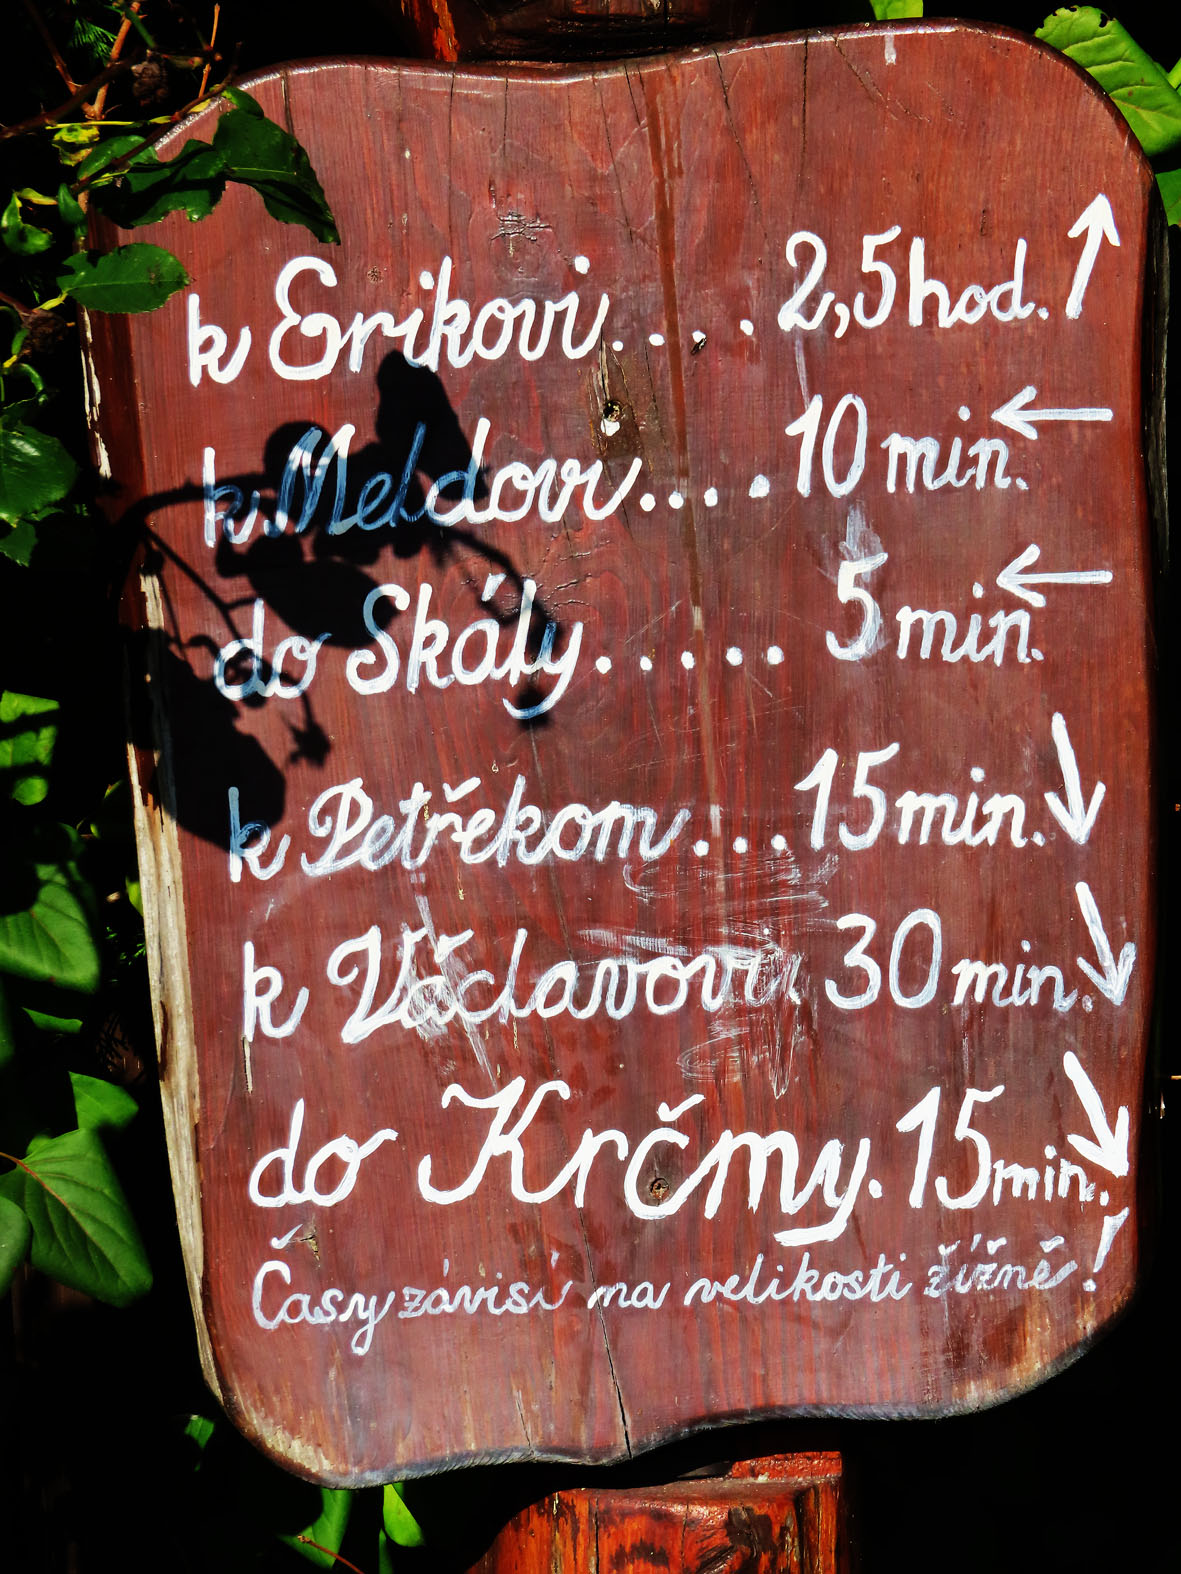 k Erikovi.... 2,5 hod. ↑
k Meldovi.... 10 min. ←
do Skály..... 5 min. ←
k Petřekom... 15 min. ↓
k Václavovi. 30 min. ↓
do Krčmy. 15 min. ↓
Časy závisí na velikosti žízně!